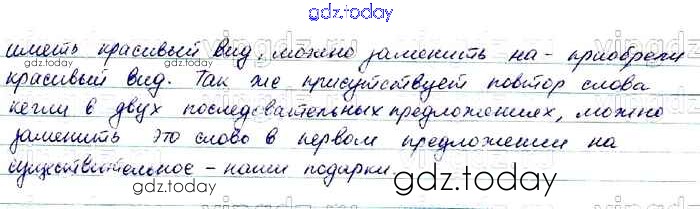 gdz.today
иметь красивый вид, можно заменить на - приобрели
gdz.today gdz.today
красивый вид. Так же присутствует повтор слова
кегли в двух последовательных предложениях, можно
заменить это слово в первом предложении на
существительное - наши подарки.
gdz.today gdz.today